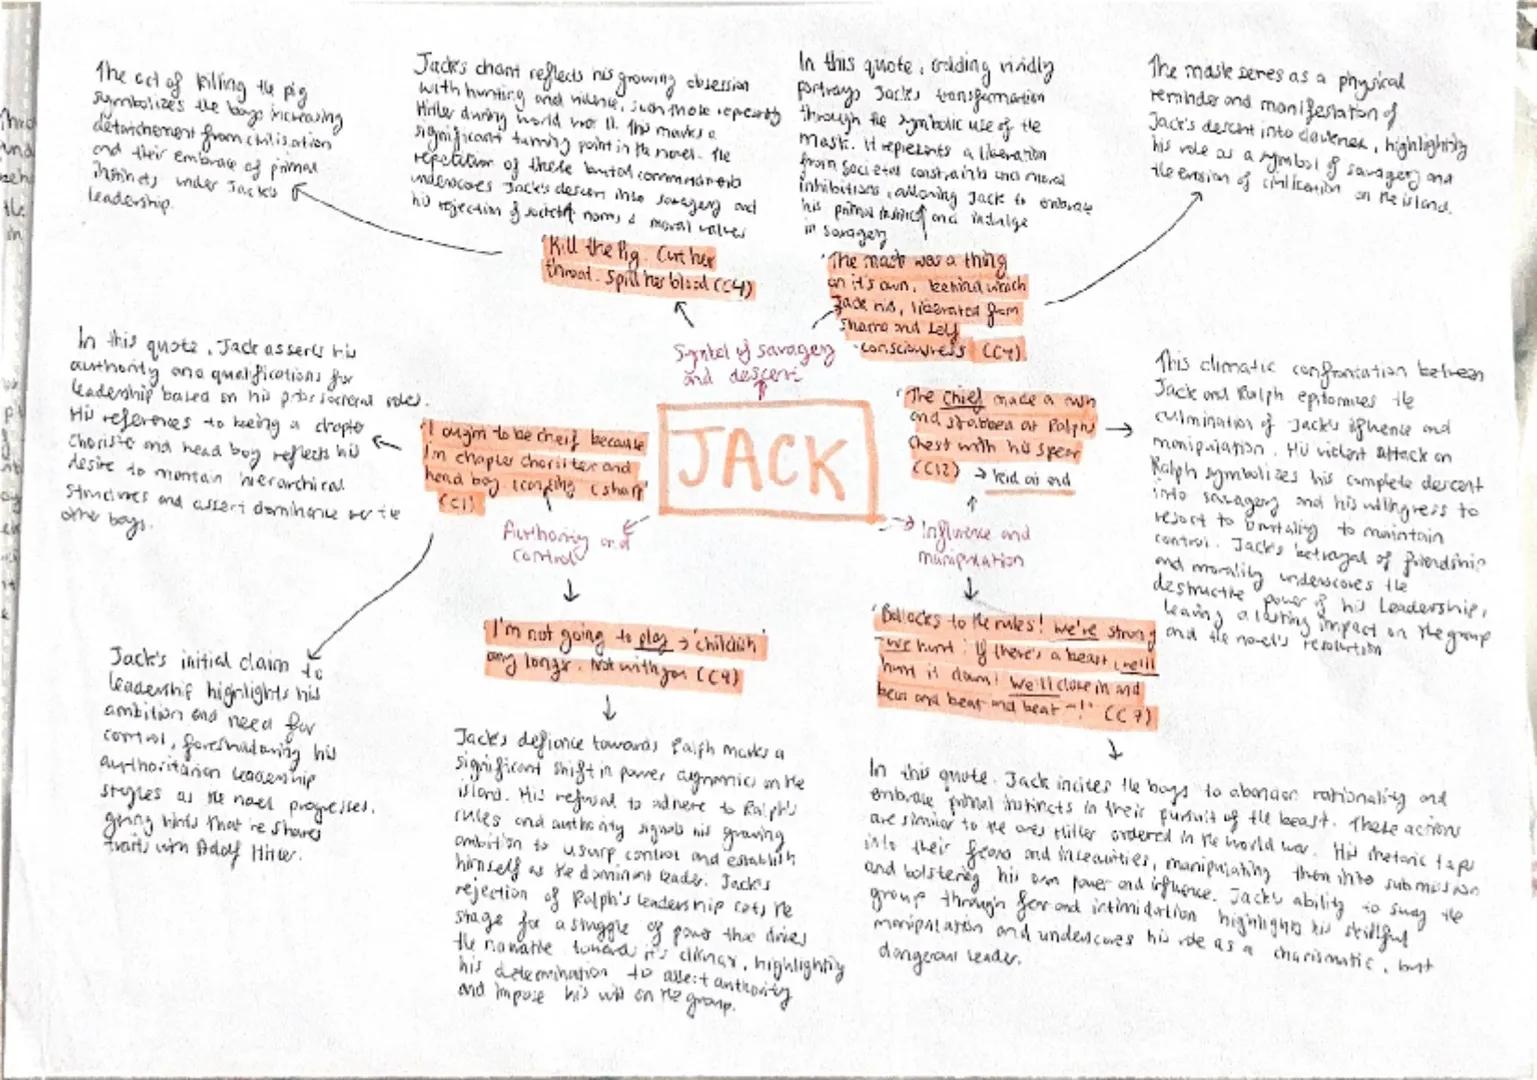 The act of killing the pig
symbolizes the boys increasing
detatchement from civilisation
and their embrace of primal
instincts under Jack's
leadership.
Jack's chant reflects his growing obsession
with hunting and violence, such those
Hitler during world war II. This marks a
significant turning point in the novel. The
repetition of these brutal
underscores Jack's descent into savagery and
his rejection of societal norms & moral values
'Kill the Pig. Cut her
throat. Spill her blood (C4)
In this quote, Golding vividly
portrays Jack's transformation
through the symbolic use of the
mask. It represents a liberation
from societal constraints and moral
inhibitions, allowing Jack to embrace
his primal instinct and indulge
in savagery
'The mask was a thing
on it's own, behind which
Jack hid, liberated from
shame and self
-consciousness (C4)
The mask serves as a physical
reminder and manifestation of
Jack's descent into darkness, highlighting
his role as a symbol of savagery and
the erosion of civilisation on the island.
Symbol of savagery
and descent
JACK
In this quote, Jack asserts his
authority and qualifications for
leadership based on his prior societal roles.
His references to being a chapter
chorister and head boy reflects his
desire to maintain hierarchical
structures and assert dominance over the
other boys.
'I ought to be cheif because
I'm chapter chorister and
head boy. I can sing C sharp'
(C1)
Authority and
control
Jack's initial claim to
leadership highlights his
ambition and need for
control, foreshadowing his
authoritarian leadership
styles as the novel progresses,
giving hints that he shares
traits with Adolf Hitler.
I'm not going to play → 'childish'
any longer. Not with you (C9)
Jack's defiance towards Ralph marks a
significant shift in power dynamics on the
island. His refusal to adhere to Ralph's
rules and authority signals his growing
ambition to usurp control and establish
himself as the dominant leader. Jack's
rejection of Ralph's leadership sets the
stage for a struggle of power that drives
the narrative towards it's climax, highlighting
his determination to assert authority
and impose his will on the group.
'The Chief made a rush
and stabbed at Ralph's
chest with his spear
(C12) →
Influence and
manipulation
This climatic confrontation between
Jack and Ralph epitomises the
culmination of Jack's influence and
manipulation. His violent attack on
Ralph symbolizes his complete descent
into savagery and his willingness to
resort to brutality to maintain
control. Jack's betrayal of friendship
and morality underscores the
destructive power of his leadership,
leaving a lasting impact on the group
and the novel's resolution
'Bollocks to the rules! We're strong
-we hunt! If there's a beast, we'll
hunt it down! We'll close in and
beat and beat and beat -!' (C7)
In this quote, Jack incites the boys to abandon rationality and
embrace primal instincts in their pursuit of the beast. These actions
are similar to the ones Hitler ordered in the world war. His rhetoric taps
into their fears and insecurities, manipulating them into submission
and bolstering his own power and influence. Jack's ability to sway the
group through fear and intimidation highlights his skillful
manipulation and underscores his role as a charismatic, but
dangerous leader.